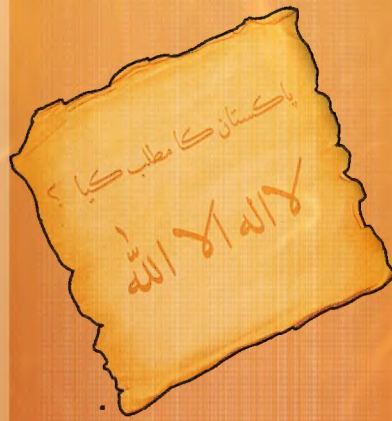 پاکستان کا مطلب کیا ؟
لا الہ الا اللہ